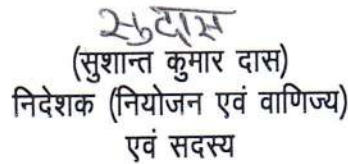 सुदास
(सुशान्त कुमार दास)
निदेशक (नियोजन एवं वाणिज्य)
एवं सदस्य